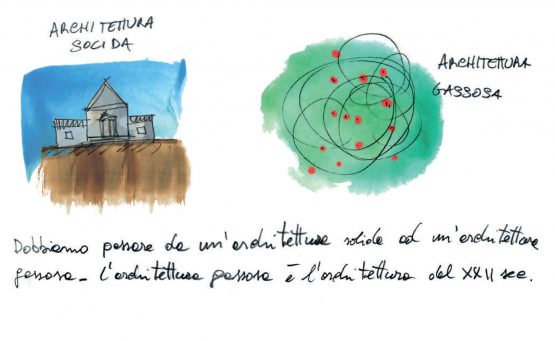 ARCHITETTURA
SOLIDA
ARCHITETTURA
GASSOSA
Dobbiamo passare da un'architettura solida ad un'architettura
gassosa - l'architettura gassosa è l'architettura del XXII sec.